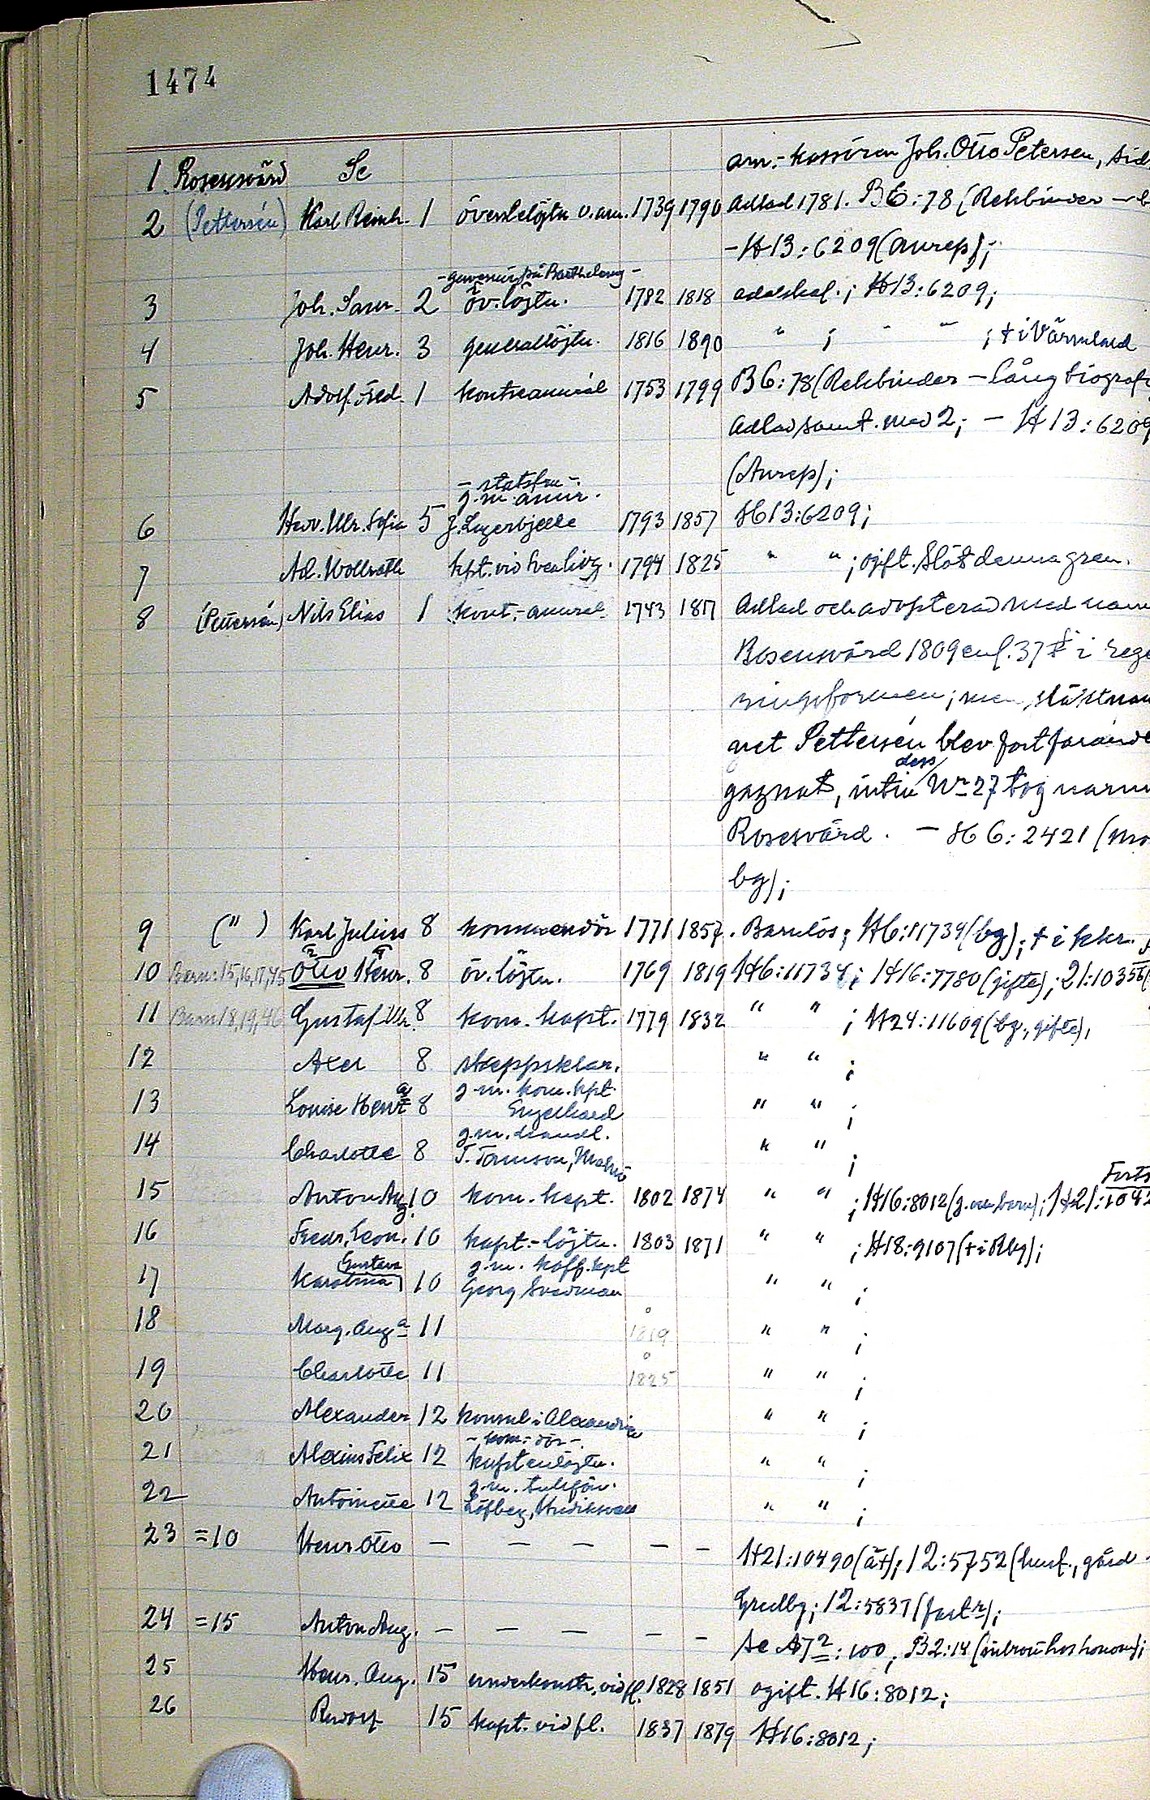 1474
1 Rosensvärd Se arm.-kassören Joh. Otto Petersen,
2 (Pettersén) Karl Reinh. 1 överstelöjtn. v. arm. 1739 1790 Adlad 1781. B6:78 (Rehbinder —
- H13:6209 (Anrep);
- guvernör på Barthelemy -
3 Joh. Sam. 2 öv.löjtn. 1782 1818 adelskal.; H13:6209;
4 Joh. Henr. 3 generallöjtn. 1816 1890 " ; " " ; † i Värmland
5 Adolf Fred. 1 konteramiral 1753 1799 B6:78 (Rehbinder — lång biografi
Adlad samt. med 2; — H13:6209
(Anrep);
- statsfru -
g.m. amir.
6 Hedv. Ulr. Sofia 5 J. Lagerbjelke 1793 1857 H13:6209;
7 Ad. Wollrath kpt. vid Svea livg. 1794 1825 " " ; ogift. Slöt denna gren.
8 (Pettersén) Nils Elias 1 kont.-amiral 1743 181 Adlad och adopterad med namn
Rosensvärd 1809 enl. 37 § i rege
ringsformen; men släktnam
net Pettersén blev fortfarande
dess
gagnat, intill Nr 27 tog namn
Rosensvärd. — H6:2421 (
bg);
9 ( " ) Karl Julius 8 kommendör 1771 1857. Barnlös; H6:11734 (bg); †
10 Barn: 15,16,17,45 Otto Henr. 8 öv.löjtn. 1769 1819 H6:11734; H16:7780 (gifte); 21:10356
11 Barn 18,19,46 Gustaf Ulr. 8 kom.-kapt. 1779 1832 " " ; H24:11609 (bg., gifte),
12 Axel 8 skeppsklar. " " ;
g.m. kom.kpt.
13 Louise Henr:a 8 Engelhard " " ;
g.m. handl.
14 Charlotte 8 T. Tomson, Malmö " " ;
Forts
15 Anton Aug. 10 kom.-kapt. 1802 1874 " " ; H16:8012 (g. barn); H21:1042
16 Fredr. Leon. 10 kapt.-löjtn. 1803 1871 " " ; H18:9107 (†i Rbg);
Gustava g.m. koff.kpt
17 Karolina 10 Georg Svedman " " ;
18 Marg. Aug:a 11 1819 " " ;
19 Charlotte 11 1825 " " ;
20 Alexander 12 konsul i Alexandria " " ;
- kom:dör -
21 Alexius Felix 12 kaptenlöjtn. " " ;
g.m. tullförv.
22 Antoinette 12 Löfberg, Hudiksvall " " ;
23 =10 Henr. Otto — — — — — H21:10490 (ätt); 12:5752 (hust., gård
Gredbg; 12:5837 (fast:r);
24 =15 Anton Aug. — — — — — Se A7:100, B2:14
25 Henr. Aug. 15 underkonstr. vid fl. 1828 1851 ogift. H16:8012;
26 Rudolf 15 kapt. vid fl. 1837 1879 H16:8012;